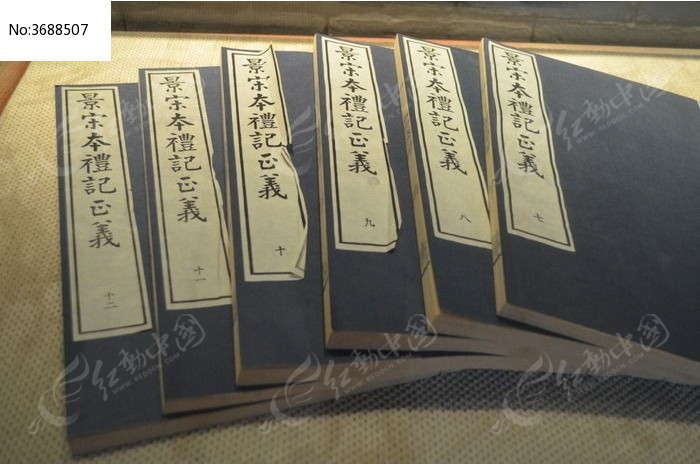 No:3688507
景宋本禮記正義 十二
景宋本禮記正義 十一
景宋本禮記正義 十
景宋本禮記正義 九
景宋本禮記正義 八
景宋本禮記正義 七
红动中国
WWW.REDOCN.COM